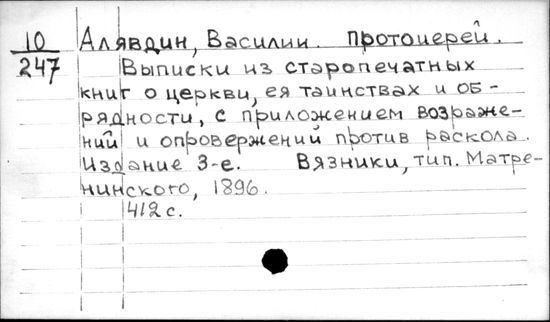 10 Алявдин, Василии. протоиерей.
247 Выписки из старопечатных
книг о церкви, ея таинствах и об-
рядности, с приложением возраже-
ний и опровержений против раскола.
Издание 3-е. Вязники, тип. Матре-
нинского, 1896.
412 с.